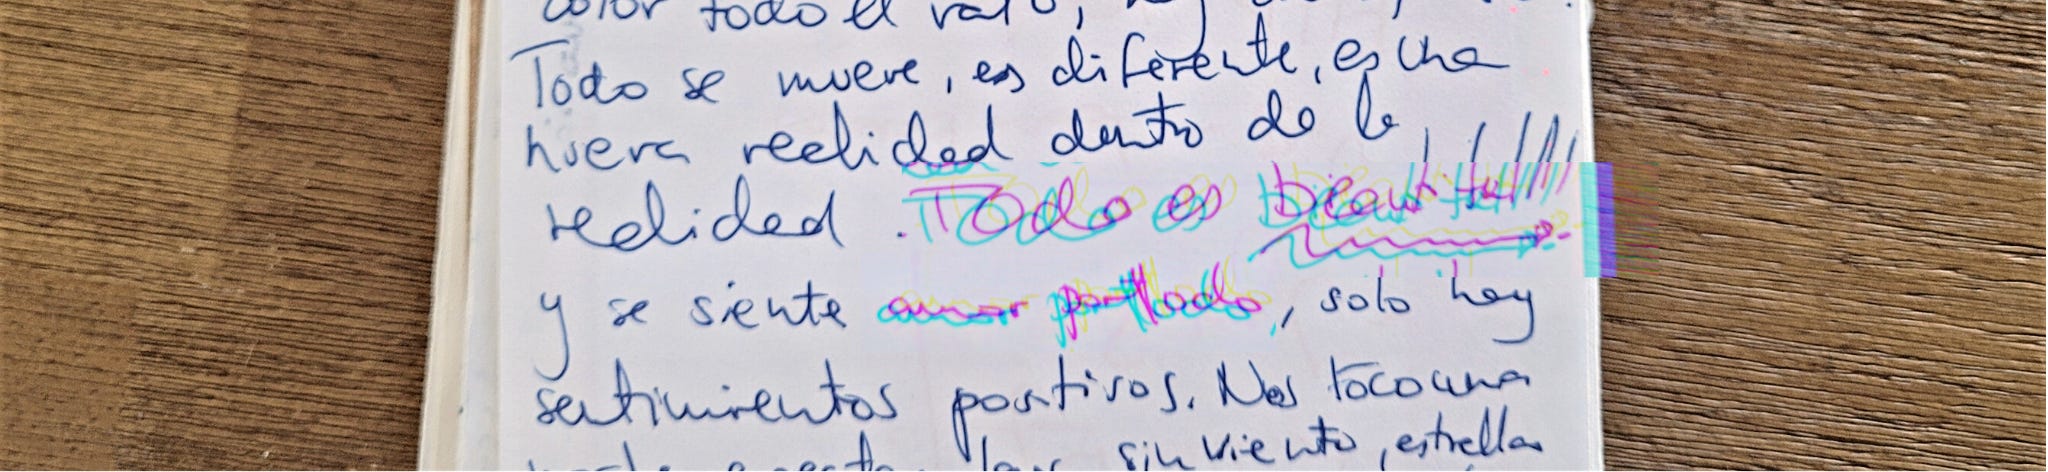 color todo el rato,
Todo se mueve, es diferente, es una
nueva realidad dentro de la
realidad. Todo es beautiful!!!!!!
y se siente amor por todo, solo hay
sentimientos positivos. Nos toco una
sin viento, estrellas